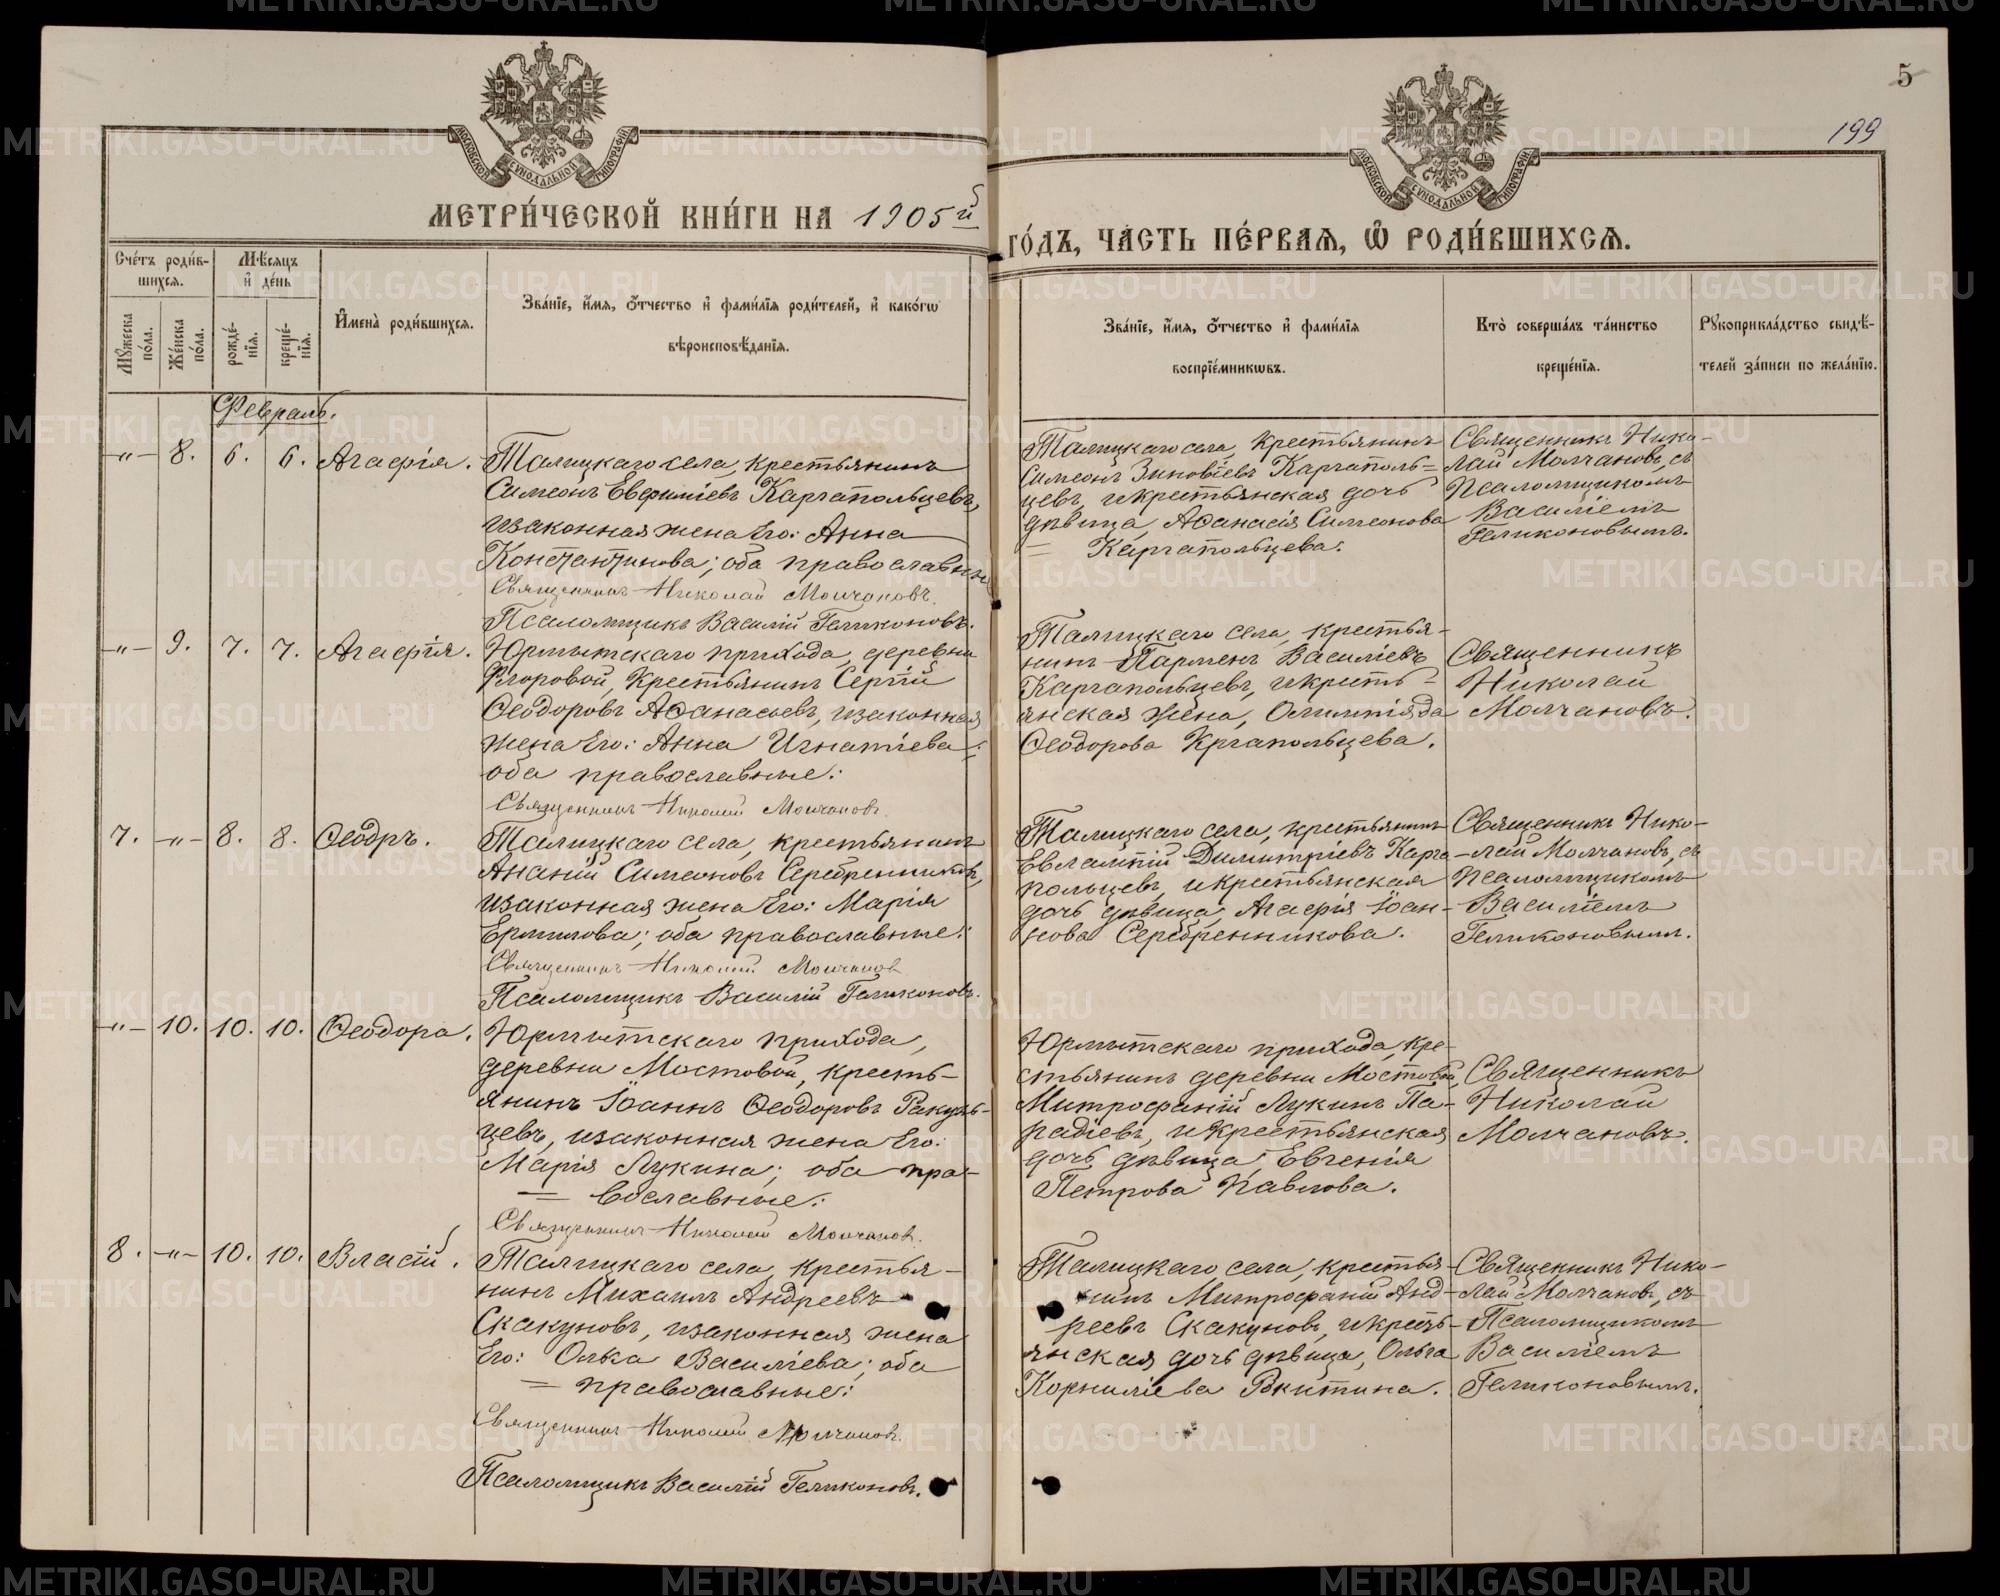 5
199
МОСКОВСКОЙ СѴНОДАЛЬНОЙ ТИПОГРАФІИ
МОСКОВСКОЙ СѴНОДАЛЬНОЙ ТИПОГРАФІИ
МЕТРИ́ЧЕСКОЙ КНИ́ГИ НА 1905й
ГО́ДЪ, ЧА́СТЬ ПЕ́РВАѦ, Ѡ РОДИ́ВШИХСѦ.
Сче́тъ роди́в-
шихсѧ.
Мѣ́сѧцъ
и҆ де́нь
Мꙋ́жеска
по́ла.
Же́нска
по́ла.
рожде́-
нїѧ.
креще́-
нїѧ.
И҆мена̀ роди́вшихсѧ.
Зва́нїе, и҆́мѧ, ѻ҆́тчество и҆ фами́лїѧ роди́телей, и҆ како́гѡ
вѣроисповѣ́данїѧ.
Зва́нїе, и҆́мѧ, ѻ҆́тчество и҆ фами́лїѧ
воспрїе́мникѡвъ.
Кто̀ соверша́лъ та́инство
креще́нїѧ.
Рꙋкоприкла́дство свидѣ́-
телей за́писи по жела́нїю.
Февраль.
-"- 8. 6. 6. Агафія.
Талицкаго села, крестьянинъ
Симеонъ Евфиміевъ Каргапольцевъ,
изаконная жена Его: Анна
Константинова; оба православные
Священникъ Николай Молчановъ.
Псаломщикъ Василій Геликоновъ.
Талицкаго села, крестьянинъ
Симеонъ Зиновіевъ Каргаполь=
цевъ, икрестьянская дочь
дѣвица, Аѳанасія Симеонова
= Каргапольцева.
Священникъ Нико-
лай Молчановъ, съ
Псаломщикомъ
Василіемъ
Геликоновымъ.
-"- 9. 7. 7. Агафія.
Юрмытскаго прихода, деревни
Флоровой, Крестьянинъ Сергій
Ѳеодоровъ Аѳанасьевъ, изаконная
жена Его: Анна Игнатіева;
оба православные:
Священникъ Николай Молчановъ.
Талицкаго села, крестья-
нинъ Парменъ Василіевъ
Каргапольцевъ, икресть-
янская жена, Олимпіяда
Ѳеодорова Кргапольцева.
Священникъ
Николай
Молчановъ.
7. -"- 8. 8. Ѳеодръ.
Талицкаго села, крестьянинъ
Ананій Симеоновъ Серебренниковъ,
изаконная жена Его: Марія
Ермилова; оба православные:
Священникъ Николай Молчановъ
Псаломщикъ Василій Геликоновъ.
Талицкаго села, крестьянинъ
Евлампій Димитріевъ Карга
польцевъ, икрестьянская
дочь дѣвица, Агафія Іоан-
нова Серебренникова.
Священникъ Нико-
-лай Молчановъ, съ
Псаломщикомъ
Василіемъ
Геликоновым.
-"- 10. 10. 10. Ѳеодора.
Юрмытскаго прихода,
деревни Мостовой, кресть-
янинъ Іоаннъ Ѳеодоровъ Ракуль-
цевъ, изаконная жена Его:
Марія Лукина; оба пра-
= вославные:
Священникъ Николай Молчановъ.
Юрмытскаго прихода, кре-
стьянинъ деревни Мостовой,
Митрофаній Лукинъ Па-
радіевъ, икрестьянская
дочь дѣвица, Евгенія
Петрова Павлова.
Священникъ
Николай
Молчановъ.
8. -"- 10. 10. Власій.
Талицкаго села, крестья-
нинъ Михаилъ Андреевъ
Скакуновъ, изаконная жена
Его: Олька Василіева; оба
= православные:
Священникъ Николай Молчановъ.
Псаломщикъ Василій Геликоновъ.
Талицкаго села, крестья-
нинъ Митрофаній Анд-
реевъ Скакуновъ, икресть-
янская дочь дѣвица, Ольга
Корниліева
Священникъ Нико-
лай Молчановъ, съ
Псаломщикомъ
Василіемъ
Геликоновымъ.
METRIKI.GASO-URAL.RU